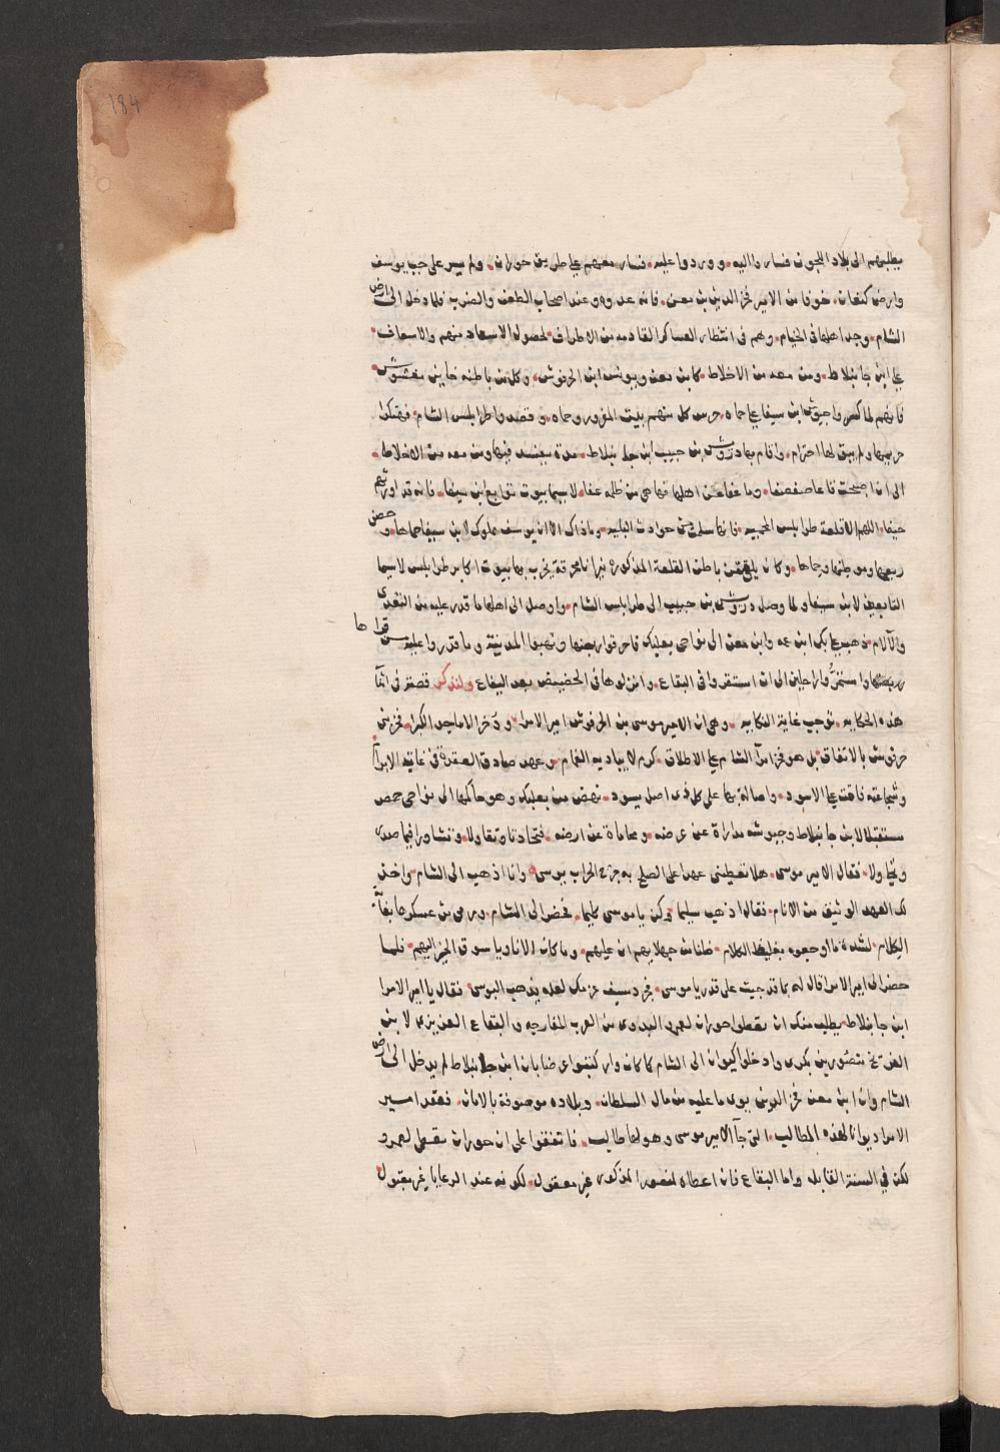 184
يطلبهم الى بلاد اللجون فسار واليه ووردوا عليه فسار معهم على طريق حوران ولم يسر على جب يوسف
وارض كنعان خوفا من الامير فخر الدين بن معن فانه عدوه عند اصحاب الطعن والضرب فلما دخل الى ارض
الشام وجد اهلها فى الخيام وهم فى انتظار العساكر القادمه من الاطراف لحصول الاسعاد منهم والاسعاف
على ابن جانبلاط ومن معه من الاخلاط كابن معن ويونس ابن الحرفوش وكل من باطنه خاين مغشوش
فانهم لما كسروا جيوش ابن سيفا على حماه حرس كل منهم بيت المزور وحماه وقصدوا طرابلس الشام فهتكوا
حريمها ولم يبق لها احترام واقام بها درويش بن حبيب ابن جانبلاط مدة يفسد فيها ومن معه من الاخلاط
الى ان اصبحت قاعا صفصفا وما عفا عن اهلها فيا حى من ظلمه عفا لا سيما بيوت توابع ابن سيفا فانه قد اورثهم
حيفا اللهم الا قلعة طرابلس المحميه فانها سلمت من حوادث البليه وما ذاك الا ان يوسف مملوك لابن سيفا حماها وحصن
ربعها وموطنها وحماها وكان يلقى من باطن القلعة المذكوره نيرانا محرقة يخرب بها بيوت اكابر طرابلس لاسيما
التابعين لابن سيفا ولما وصل درويش بن حبيب الى طرابلس الشام واوصل الى اهلها ما قدر عليه من التعدى
والآلام ذهب على بك ابن عه وابن معن الى نواحى بعلبك فاحرقوا ربعها ونهبوا المدينة وما قدروا عليه من قراها
واستمروا راحلين الى ان استقروا فى البقاع وانزلوها فى الحضيض بعد اليفاع ولنذكر قصة فى اثنا
هذه الحكايه توجب غاية النكايه وهى ان الامير موسى بن الحرفوش امير الامرا وذخر الاماجد الكبرا فخر بنى
حرفوش بالاتفاق بل هو فخر امرآ الشام على الاطلاق كرم لا يباديه الغمام وعهد صادق العقدة فى غاية الابرآ
وشجاعته فاقت على الاسود واصالة بها على كل ذى اصل يسود نهض من بعلبك وهو حاكمها الى نواحى حمص
مستقبلا لابن جانبلاط وجيوشه مداراة عن عرضه ومحاماة عن ارضه فتحادثا وتقاولا وتشاورا فيما صدى
وتحاولا فقال الامير موسى هلا تعطينى عهدا على الصلح به جرح الحراب يوسى وانا اذهب الى الشام واخذ
لك العهد الوثيق من الانام فقال اذهب سليما وكن يا موسى كليما فحضر الى الشام ورمى من عسكرها بغاة
الكلام لشدة ما اوجعوه بغليظ الكلام ظنا من جهلايهم ان عليهم وما كان الا ناويا سوق الخير اليهم فلما
حضر الى امير الامرا قال له بما قد جيت على قدر يا موسى فجرد سيف عزمك لعله يذهب البوسى فقال يا امير الامرا
ابن جانبلاط يطلب منك ان تعطوا حوران لعمرو البدوى من العرب المفارجه والبقاع العزيزى لابن
الفريخ منصور بن بكرى وادخلوا كيوان الى الشام كما كان واركنبوا عرضا بان ابن جانبلاط لم يدخل الى ارض
الشام وان ابن معن فخر الدين يودى ما عليه من مال السلطان وبلاده موصوفة بالامان فعقد امير
الامرا ديوانا لهذه المطالب التى جآ الامير موسى وهو لها طالب فاتفقوا على ان حوران تعطى لعمرو
لكن فى السنة القابله واما البقاع فان اعطاه لمنصور المذكور غير معقول لكونه عند الرعايا غير مقبول